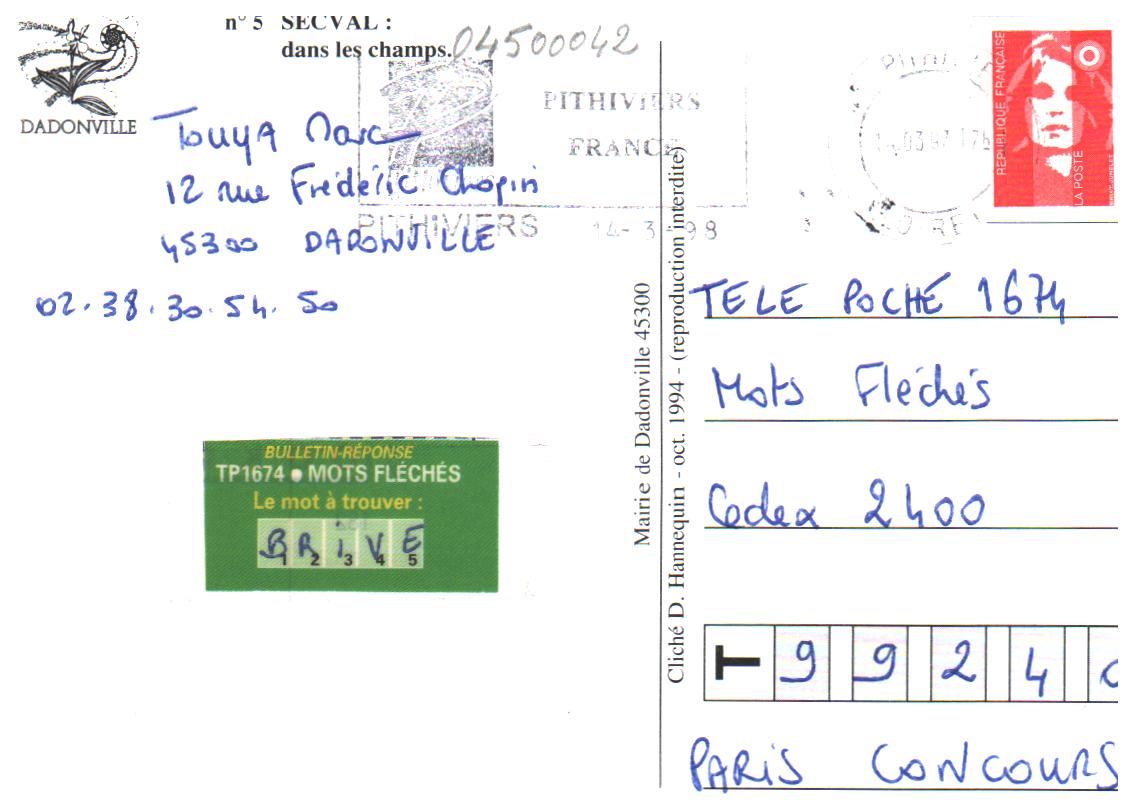 n° 5 SECVAL :
dans les champs.
04500042
DADONVILLE
PITHIVIERS
FRANCE
PITHIVIERS 14-3-98
RÉPUBLIQUE FRANÇAISE
LA POSTE
Touya Marc
12 rue Frédéric Chopin
45300 DADONVILLE
02.38.30.54.50
BULLETIN-RÉPONSE
TP1674 • MOTS FLÉCHÉS
Le mot à trouver :
BRiVE
1 2 3 4 5
Mairie de Dadonville 45300
Cliché D. Hannequin - oct. 1994 - (reproduction interdite)
TELE POCHE 1674
Mots Fléchés
Cedex 2400
T 9 9 2 4
PARiS CONCOURS